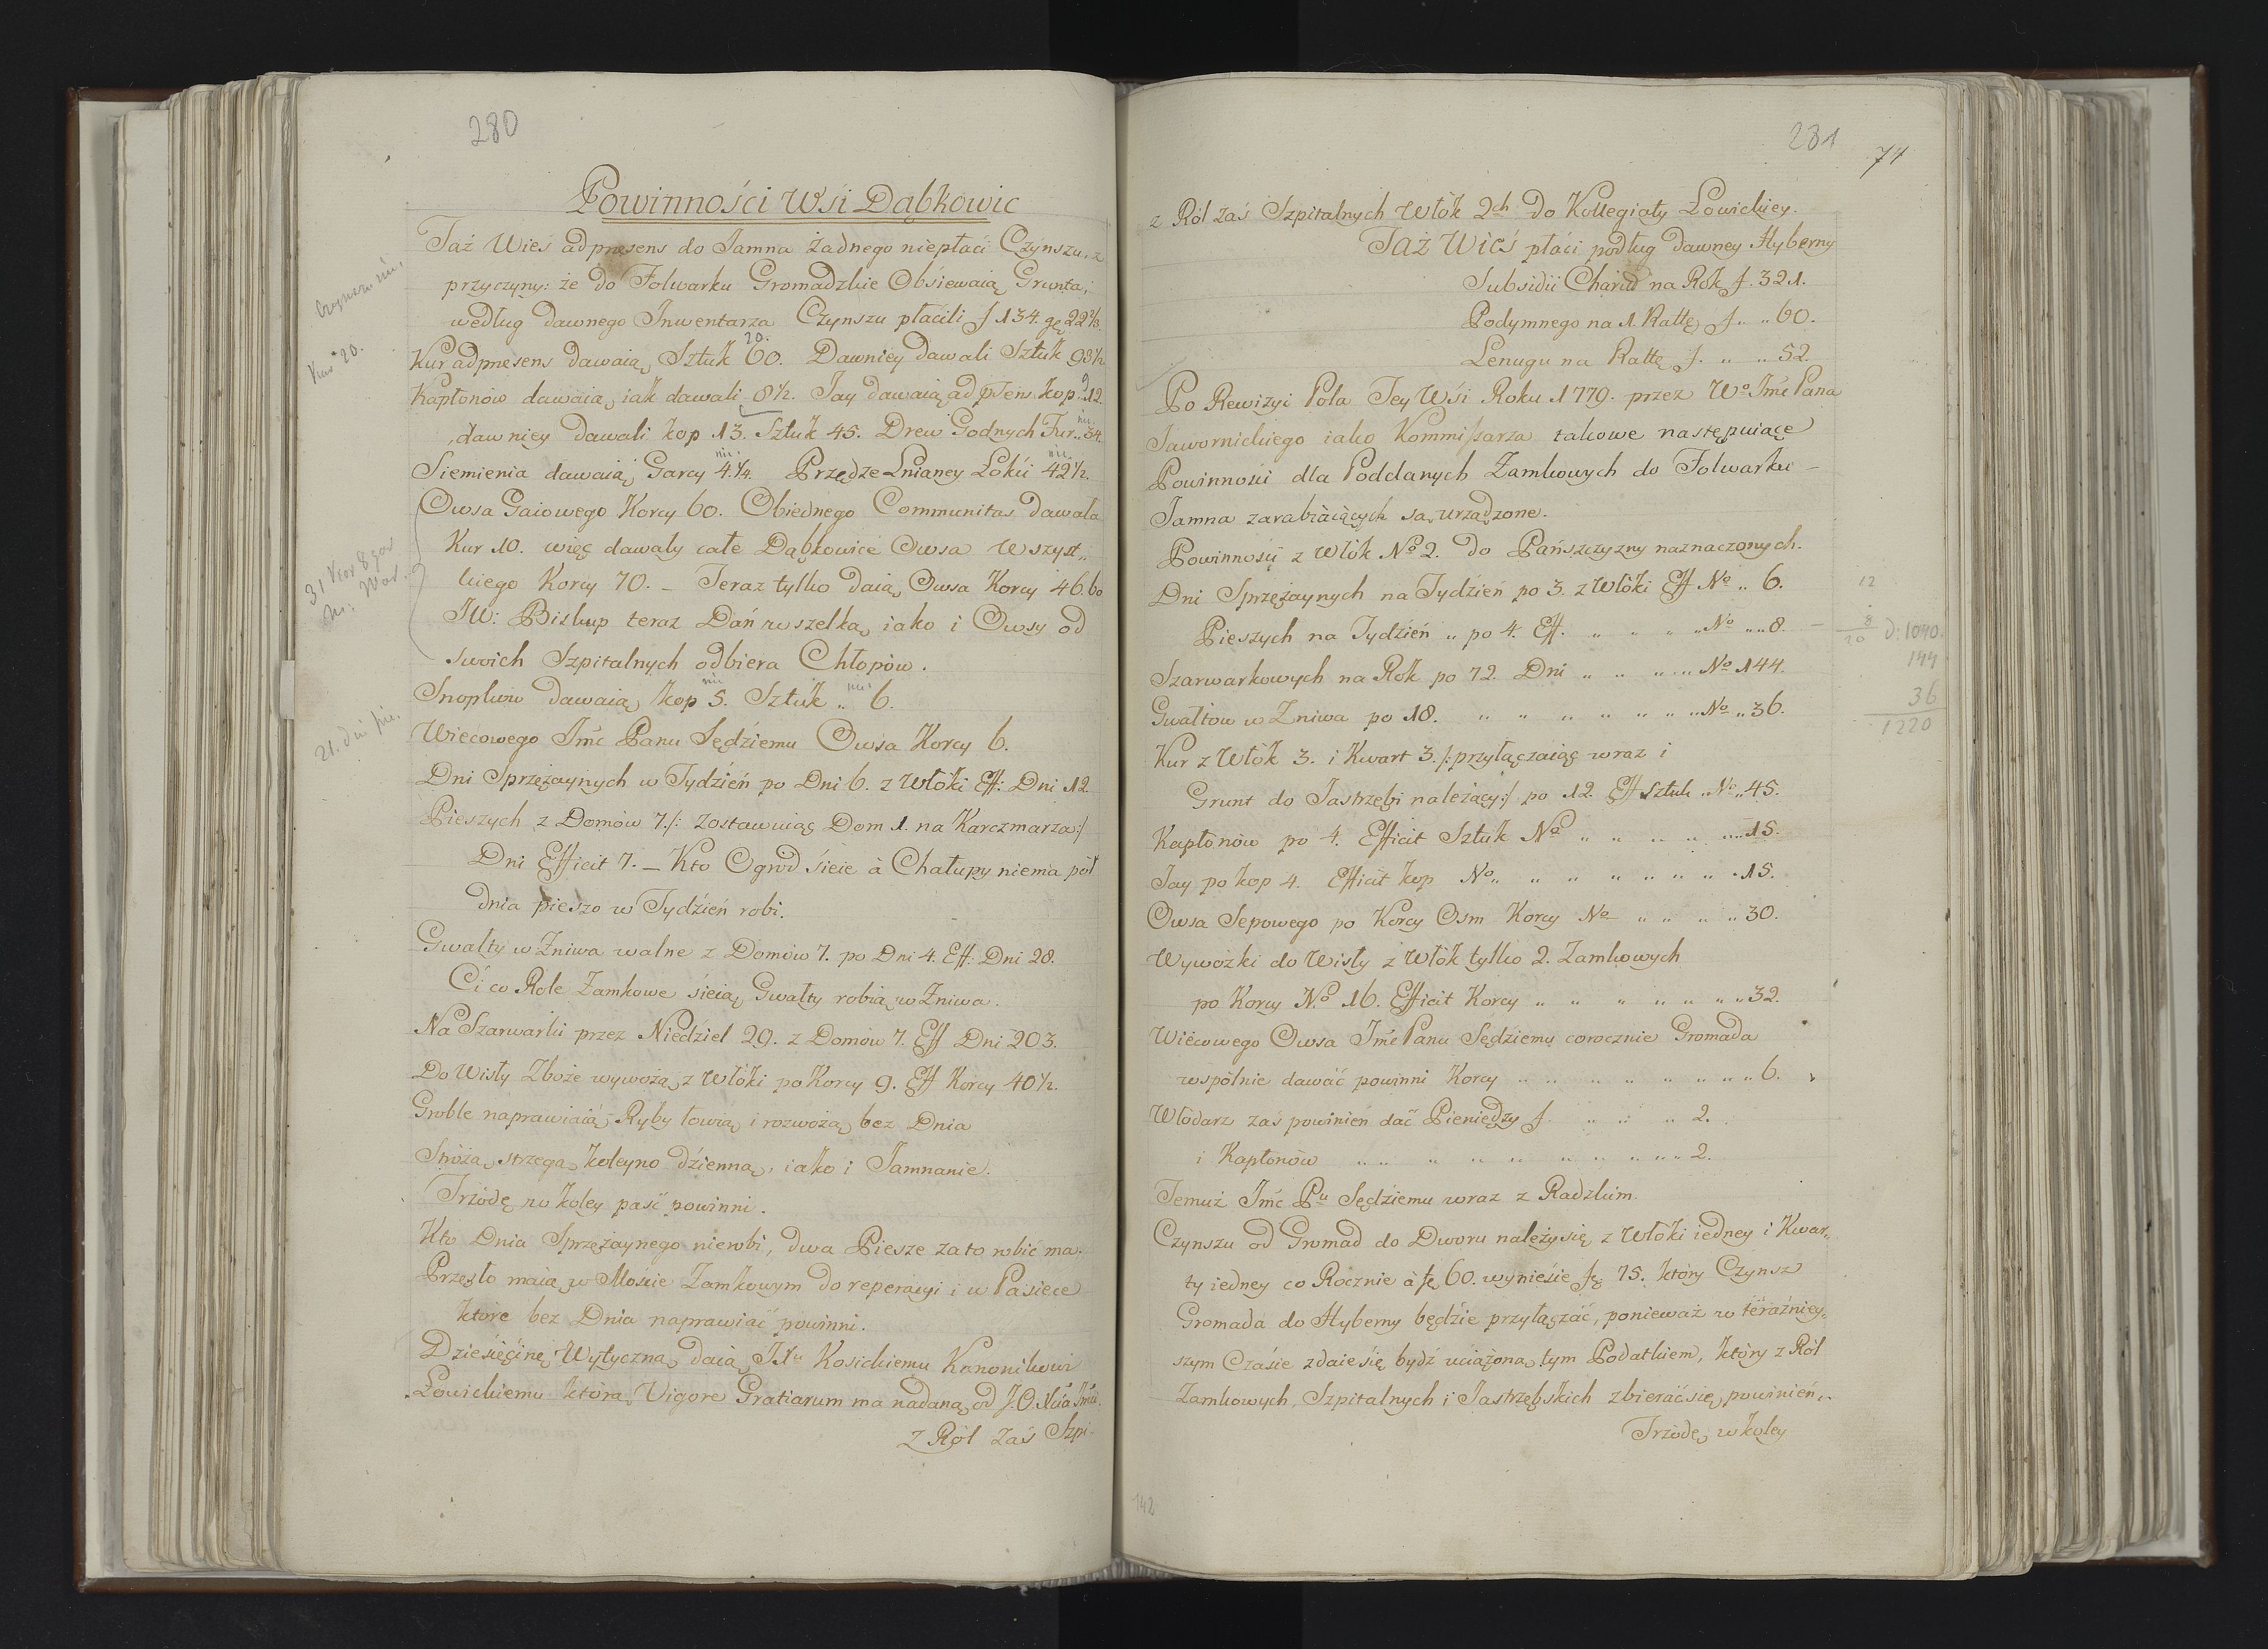 280
Powinności Wsi Dąbkowic
Taż Wieś ad presens do Jamna żadnego niepłaci Czynszu, z
przyczyny: że do Folwarku Gromadzkie Obsiewaią Grunta,
według dawnego Inwentarza Czynszu płacili f 134. gę 22⅓.
20.
Kur ad presens dawaią Sztuk 60. Dawniey dawali Sztuk 93½
Kapłonów dawaią iak dawali 8½. Jay dawaią ad psens. kop. 12.
dawniey dawali kop 13. Sztuk 45. Drew Godnych Fur.. 34.
nic. nic.
Siemienia dawaią Garcy 4.¼. Przędze Lnianey Łokci 42½.
Owsa Gaiowego Korcy 60. Obiednego Communitas dawała
Kur 10. więc dawały całe Dąbkowice Owsa wszyst„
kiego Korcy 70. – Teraz tylko daią Owsa Korcy 46. 60
JW: Biskup teraz Dań wszelką iako i Owsy od
swoich Szpitalnych odbiera Chłopów.
nic nic
Snopków dawaią kop 5. Sztuk „ 6.
Wiecowego Jmć Panu Sędziemu Owsa Korcy 6.
Dni Sprzężaynych w Tydzień po Dni 6. z Włóki Eff: Dni 12
Pieszych z Domów 7./: zostawuiąc Dom 1. na Karczmarza:/
Dni Efficit 7. – Kto Ogród sieie à Chałupy niema pół
dnia pieszo w Tydzień robi.
Gwałty w Zniwa walne z Domów 7. po Dni 4. Eff: Dni 28.
Ci co Role Zamkowe sieią Gwałty robią w Zniwa.
Na Szarwarki przez Niedziel 29. z Domów 7. Eff Dni 203.
Do Wisły Zboże wywożą z Włóki po Korcy 9. Eff Korcy 40½.
Groble naprawiaią, Ryby łowią i rozwożą bez Dnia
Stróżą strzegą koleyno dzienną, iako i Jamnanie.
Trzodę w koley paść powinni.
Kto Dnia Sprzężaynego nierobi, dwa Piesze zato robić ma.
Przęsło maią w Moście Zamkowym do reperacyi i w Pasiece
które bez Dnia naprawiać powinni.
Dziesięcinę Wytyczną daią JXu Kosickiemu Kanonikowi
Łowickiemu którą Vigore Gratiarum ma nadaną od J.O. Xcia Jmci.
z Ról zaś Szpi-
Kur 20.
21. dni pie.
281
74
z Ról zaś Szpitalnych Włók 2ch do Kollegiaty Łowickiey.
Taż Wieś płaci podług dawney Hyberny
Subsidii Charid na Rok f. 321.
Podymnego na 1. Rattę f. „ „ 60.
Lenugu na Rattę f. „ „ 52.
Po Rewizyi Pola Tey Wsi Roku 1779. przez Wo Jmć Pana
Jawornickiego iako Kommissarza takowe następuiące
Powinności dla Poddanych Zamkowych do Folwarku –
Jamna zarabiaiących są urządzone.
Powinności z Włók No 2. do Pańszczyzny naznaczonych.
Dni Sprzężaynych na Tydzień po 3. z Włóki Eff No „ 6.
Pieszych na Tydzień „ po 4. Eff. „ „ „ „ No „ „ 8.
Szarwarkowych na Rok po 72. Dni „ „ „ „ No 144.
Gwałtow w Zniwa po 18. „ „ „ „ „ „ „ No „ 36.
Kur z Włók 3. i Kwart 3. /: przyłączaiąc wraz i
Grunt do Jastrzębi należący:/ po 12. Eff Sztuk „ No „ 45.
Kapłonów po 4. Efficit Sztuk No „ „ „ „ „ „ 15.
Jay po kop 4. Efficit kop No „ „ „ „ „ „ „ 15.
Owsa Sepowego po Korcy Osm Korcy No „ „ „ „ 30.
Wywozki do Wisły z Włók tylko 2. Zamkowych
po Korcy No 16. Efficit Korcy „ „ „ „ „ „ „ 32.
Wiecowego Owsa Jmć Panu Sędziemu corocznie Gromada
wspólnie dawać powinni Korcy „ „ „ „ „ „ „ „ 6.
Włodarz zaś powinien dać Pieniędzy f. „ „ „ 2.
i Kapłonów „ „ „ „ „ „ „ „ „ „ 2.
Temuż Jmć Pu Sędziemu wraz z Radzkim.
Czynszu od Gromad do Dworu należy się z Włóki iedney i Kwar„
ty iedney co Rocznie à fę 60. wyniesie fę 75. który Czynsz
Gromada do Hyberny będzie przyłączać, ponieważ w teraźniey„
szym Czasie zdaie się bydź uciążona tym Podatkiem, który z Ról
Zamkowych, Szpitalnych i Jastrzębskich zbierać się powinien„
Trzodę w koley
12
8
20 d: 1040.
144
36
1220
142